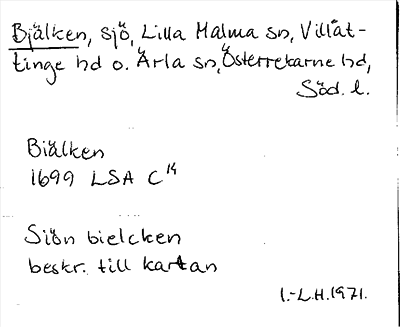 Bjälken, sjö, Lilla Malma sn, Villåt-
tinge hd o. Ärla sn, Österrekarne hd,
Söd. l.
Biälken
1699 LSA C 14
Siön bielcken
beskr. till kartan
I.-L.H. 1971.